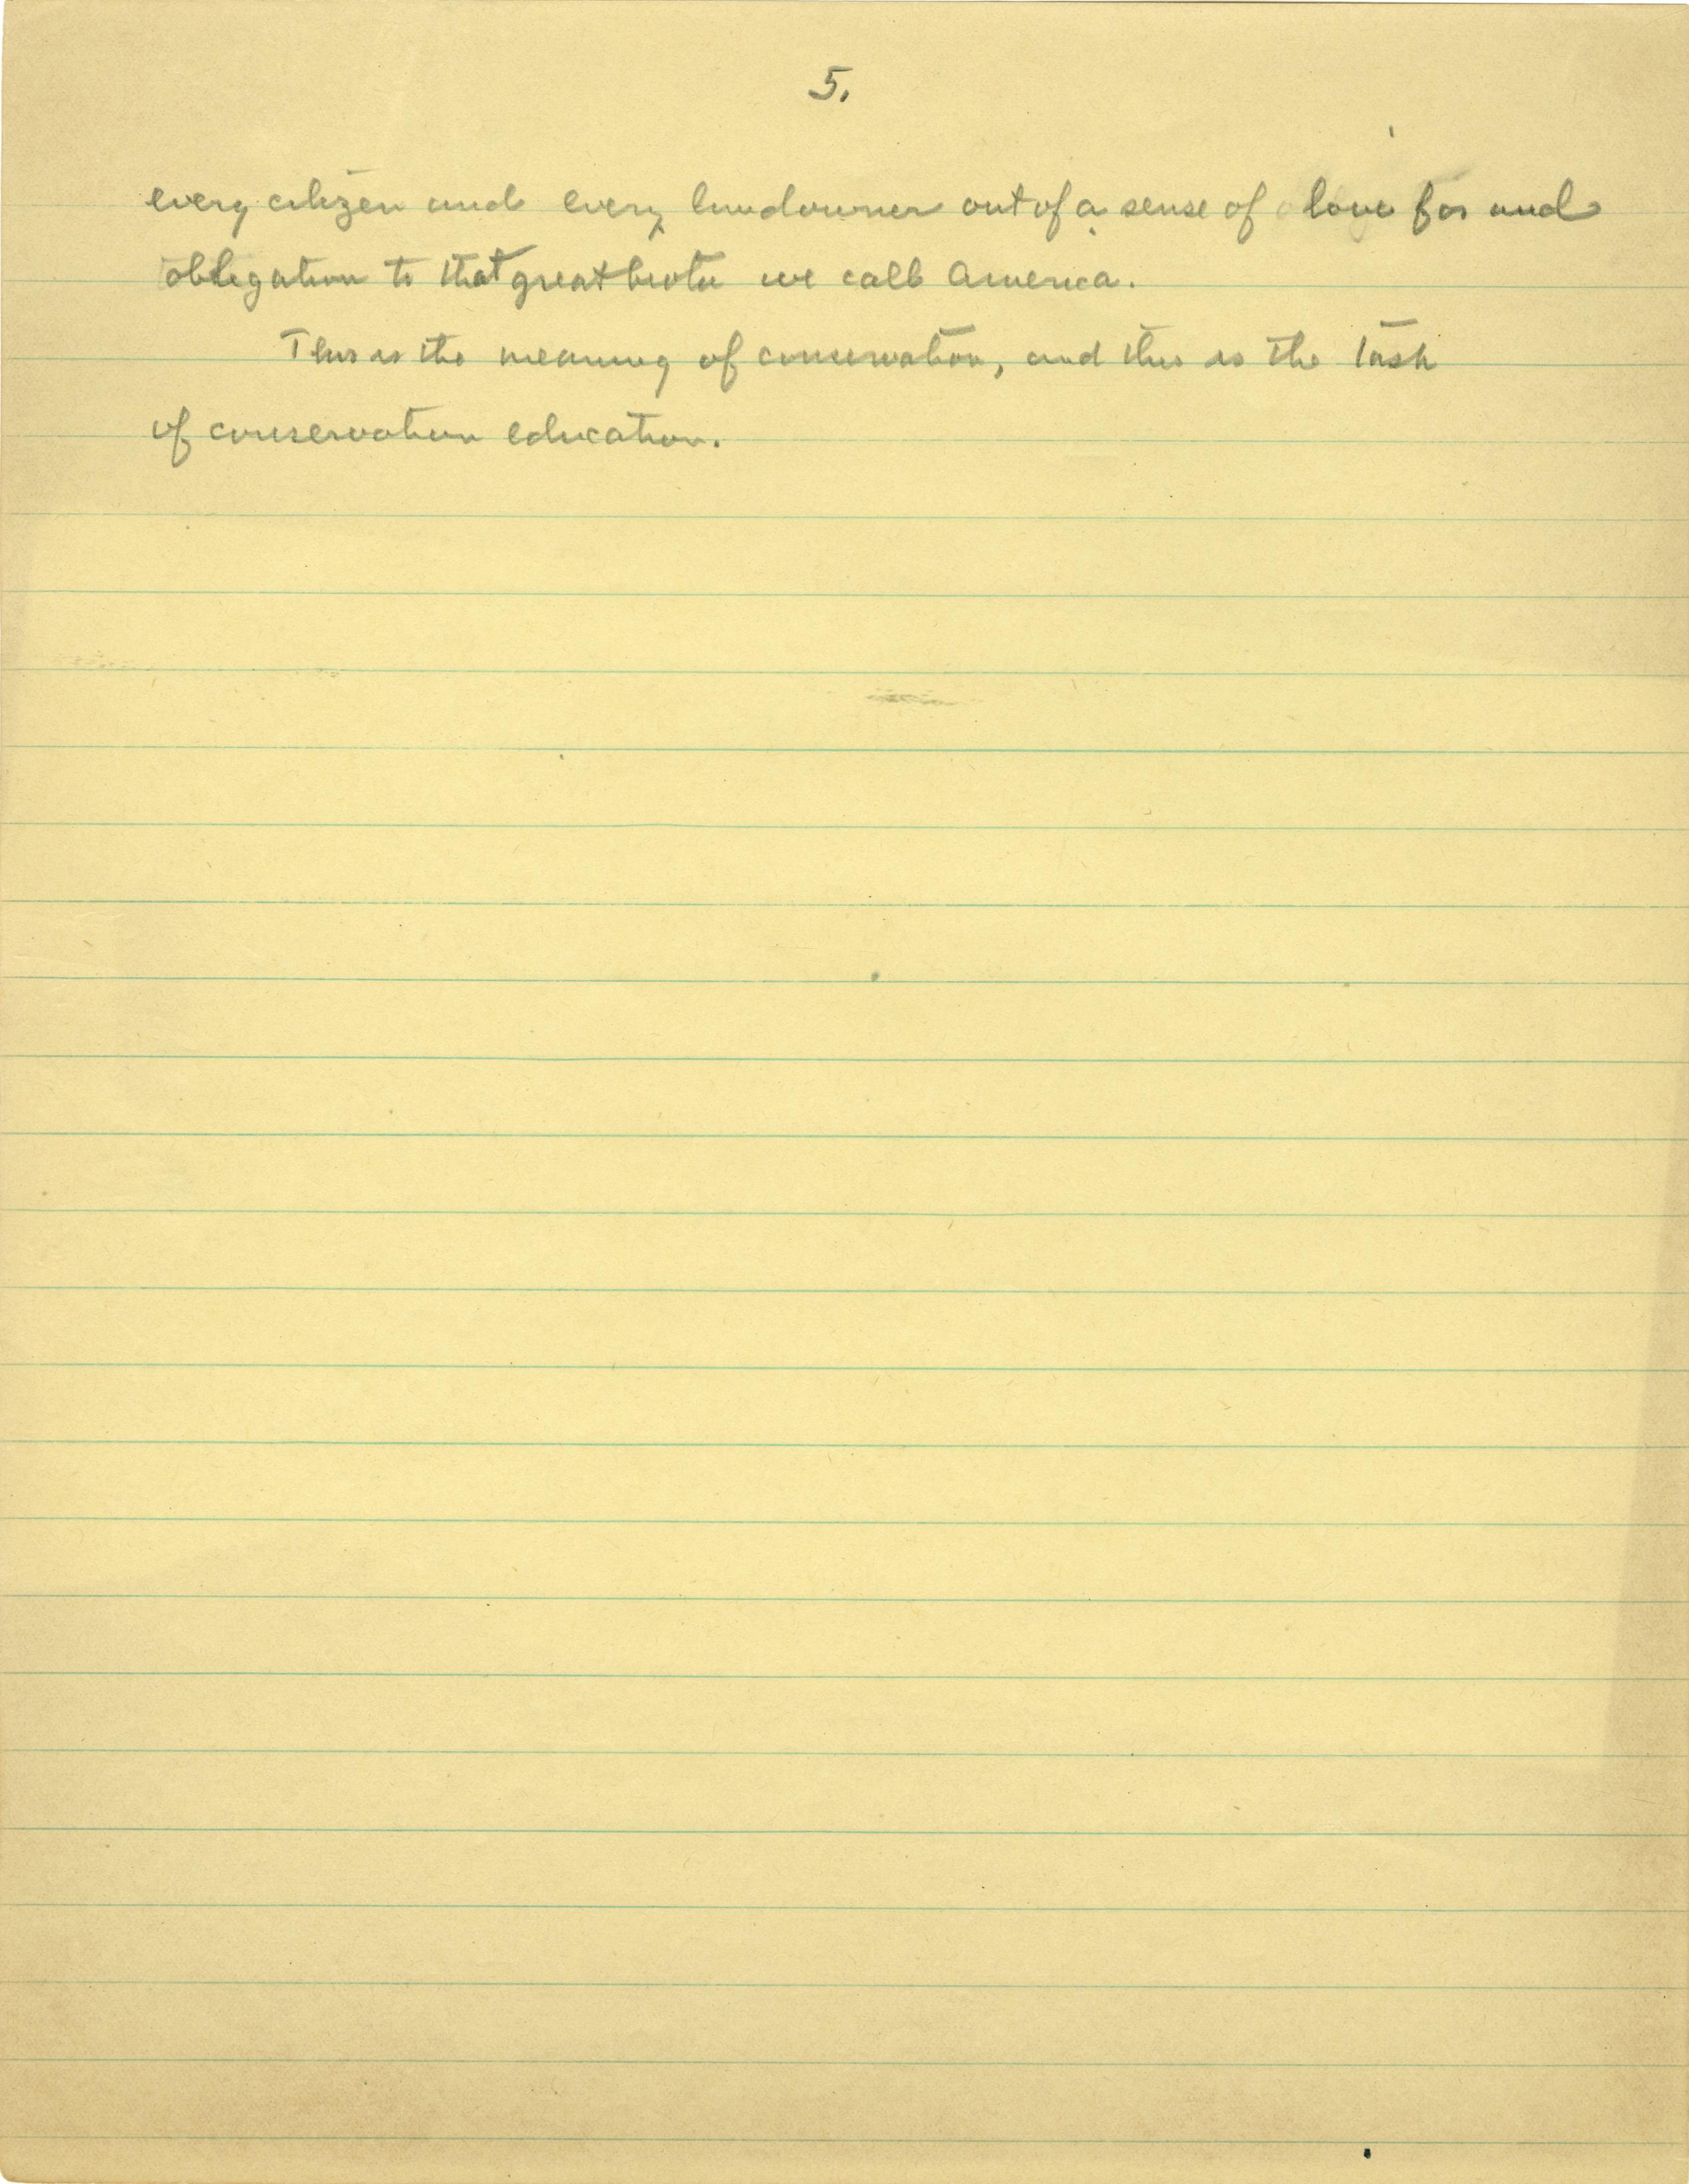 5.
every citizen and every landowner out of a sense of love for and
obligation to that great biota we call America.
This is the meaning of conservation, and this is the task
of conservation education.